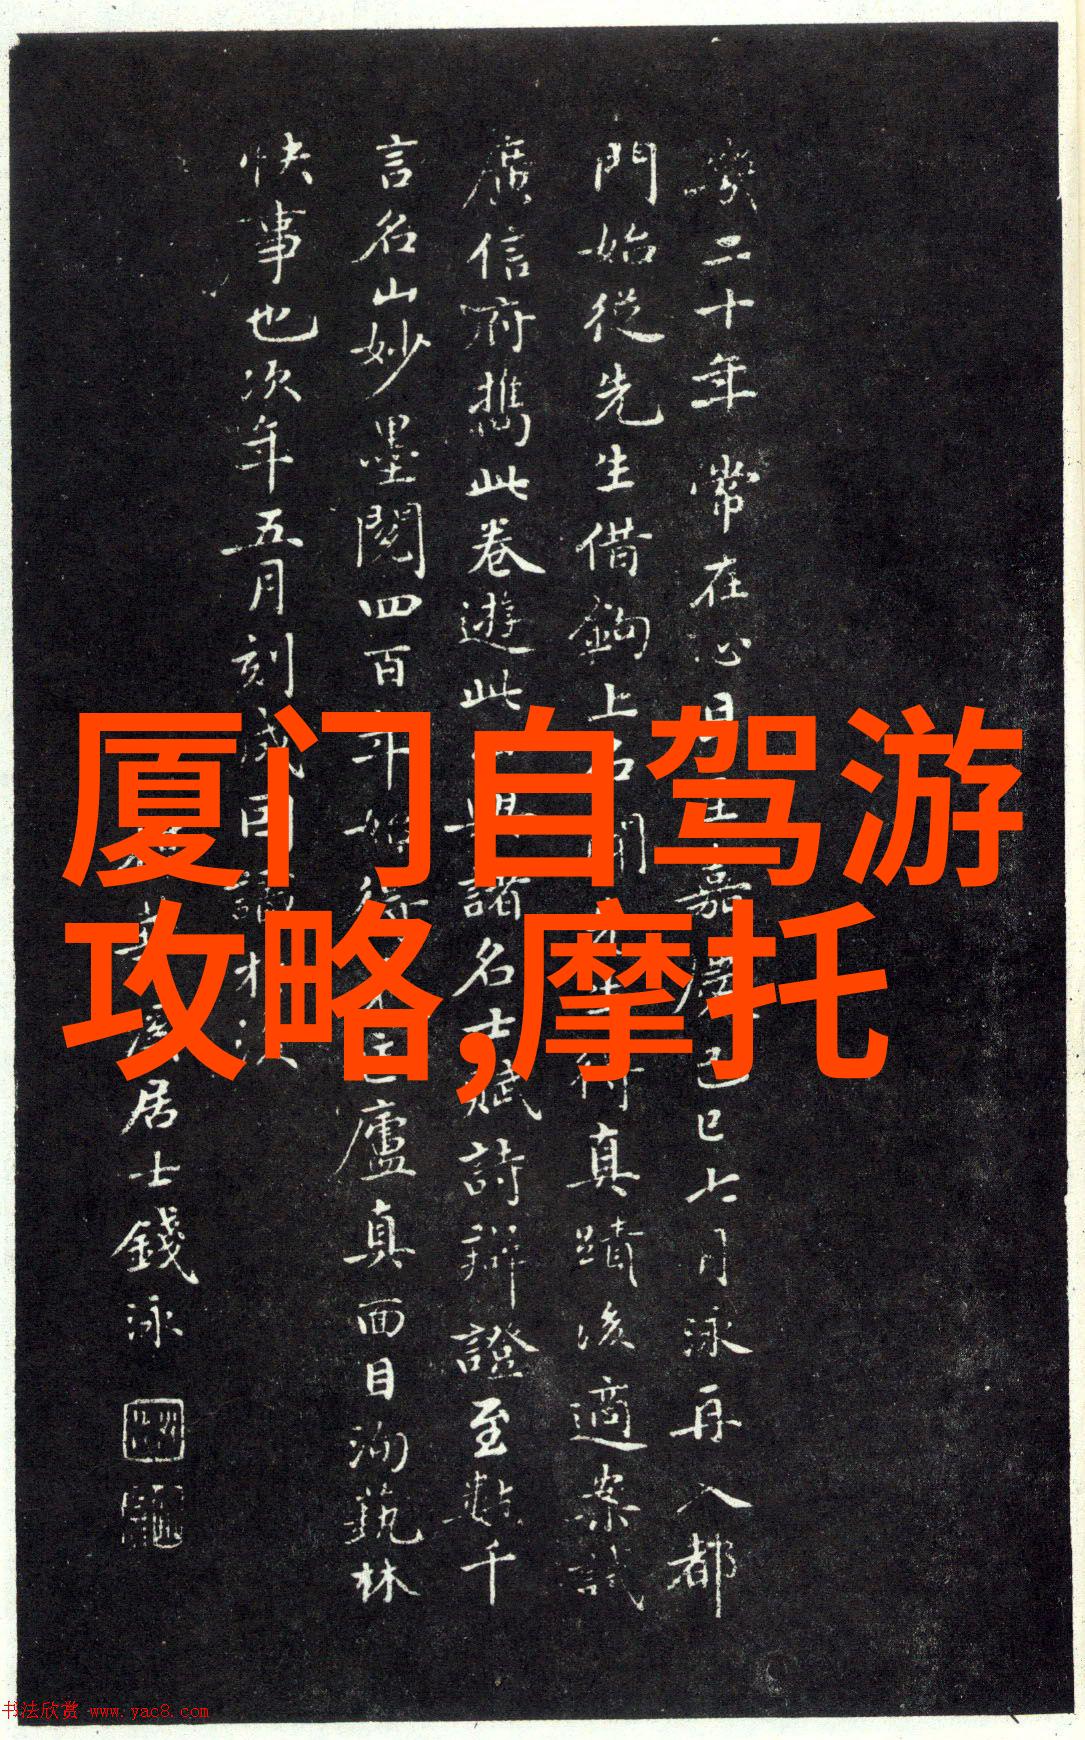 厦门自驾游
攻略,摩托
二十年常在心目 嘉慶己巳七月泳再入都
門始從先生借鉤上石 真蹟後適案試
廣信府攜此卷遊此 與諸名士賦詩辯證至數千
言名山妙墨閱四百年始得 匡廬真面目洵藝林
快事也次年五月刻成因識於後
華 居士錢泳
书法欣赏 www.yac8.com